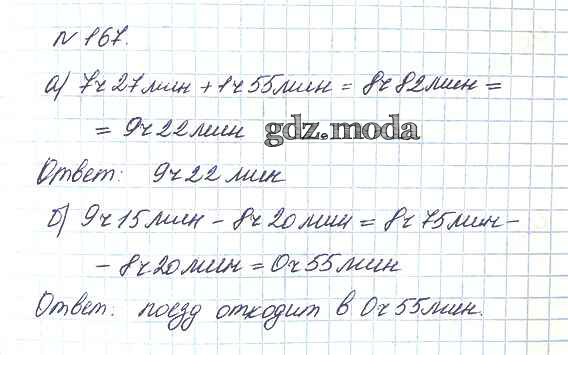 № 167.
а) 7ч 27мин + 1ч 55мин = 8ч 82мин =
= 9ч 22мин gdz.moda
Ответ: 9ч 22 мин
б) 9ч 15мин - 8ч 20мин = 8ч 75мин -
- 8ч 20мин = 0ч 55мин
Ответ: поезд отходит в 0ч 55мин.